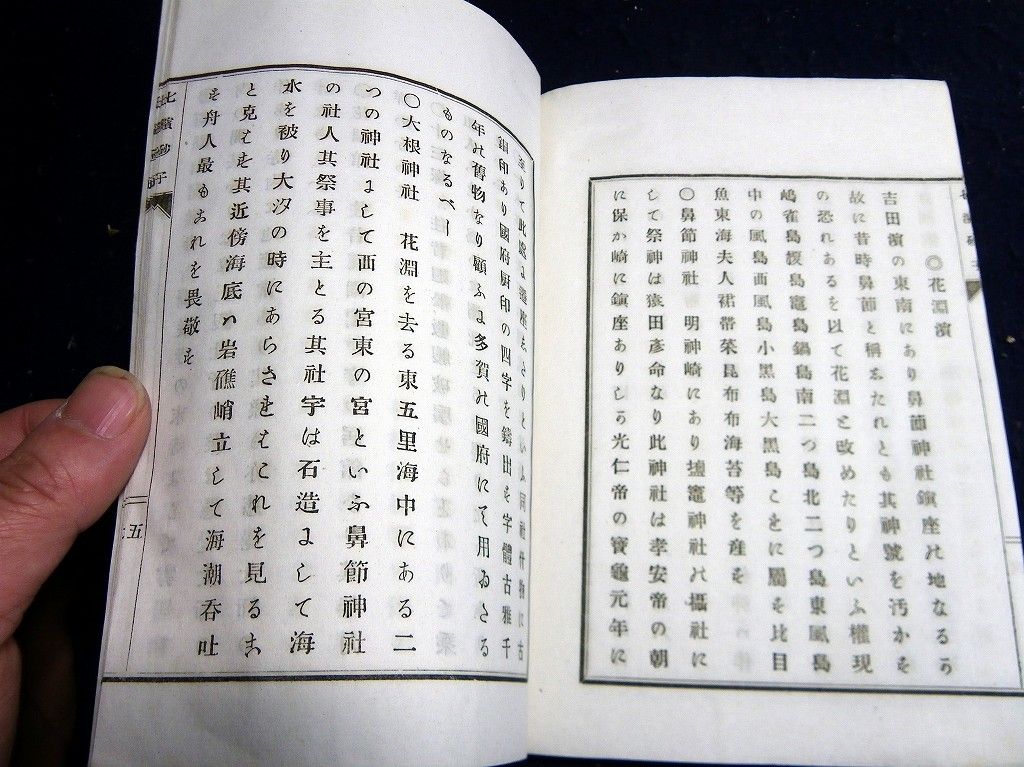 ◎花淵濱
吉田濱の東南にあり鼻節神社鎭座の地なるゟ
故に昔時鼻節と稱したれとも其神號を汚かを
の恐れあるを以て花淵と改めたりといふ權現
嶋雀島椴島竈島鍋島南二つ島北二つ島東風島
中の風島西風島小黑島大黑島こをに屬を比目
魚東海夫人裙帶菜昆布布海苔等を産を
〇鼻節神社　明神崎にあり塩竈神社の攝社に
して祭神は猿田彥命なり此神社は孝安帝の朝
に保か崎に鎭座ありしか光仁帝の寶龜元年に
至りて此處に遷座したりといふ同社什物に古
銅印あり國府厨印の四字を鑄出を字體古雅千
年の舊物なり顧ふに多賀の國府にて用ゐたる
ものなるべし
〇大根神社　花淵を去る東五里海中にある二
つの神社にして西の宮東の宮といふ鼻節神社
の社人其祭事を主とる其社宇は石造にして海
水を被り大汐の時にあらされはこれを見るこ
と克はを其近傍海底は岩礁峭立して海潮呑吐
を舟人最もこれを畏敬を
五